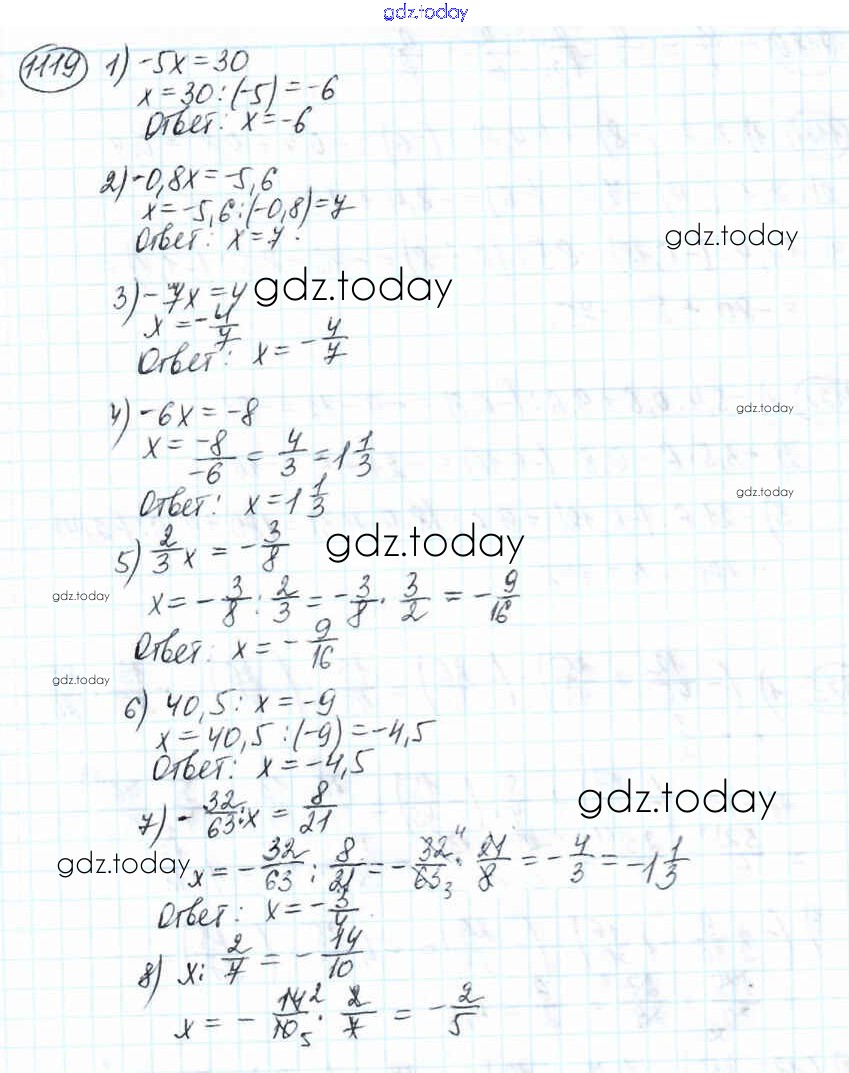 gdz.today
1119 1) -5x = 30
x = 30 : (-5) = -6
Ответ: x = -6
2) -0,8x = -5,6
x = -5,6 : (-0,8) = 7
Ответ: x = 7.
gdz.today
3) -7x = 4 gdz.today
x = -4/7
Ответ: x = -4/7
4) -6x = -8
gdz.today
x = -8/-6 = 4/3 = 1 1/3
gdz.today
Ответ: x = 1 1/3
5) 2/3 x = -3/8 gdz.today
gdz.today x = -3/8 : 2/3 = -3/8 · 3/2 = -9/16
Ответ: x = -9/16
gdz.today
6) 40,5 : x = -9
x = 40,5 : (-9) = -4,5
Ответ: x = -4,5
gdz.today
7) -32/63 : x = 8/21
gdz.today x = -32/63 : 8/21 = -32 4/63 3 · 21/8 = -4/3 = -1 1/3
Ответ: x = -3/4
8) x : 2/7 = -14/10
x = -14 2/10 5 · 2/7 = -2/5